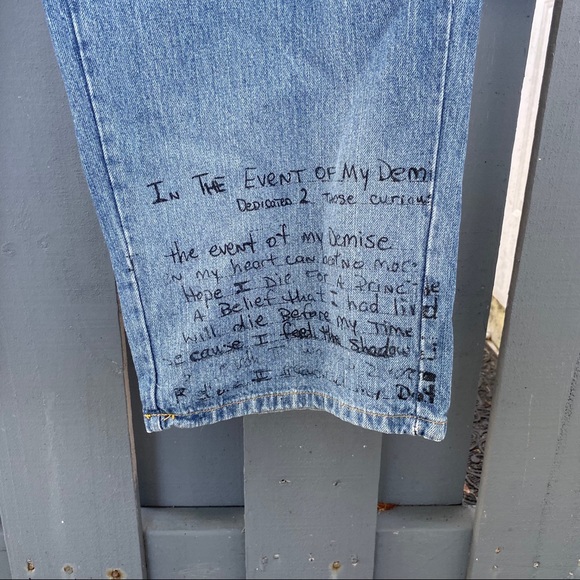 IN THE EVENT OF My Dem
DEDICATED 2 THOSE curious
the event of my Demise
my heart can beat NO MOr
Hope I Die FOR A PRINC
A Belief that I had livd
will die Before my TIME
ecause I feel the Shadow
I